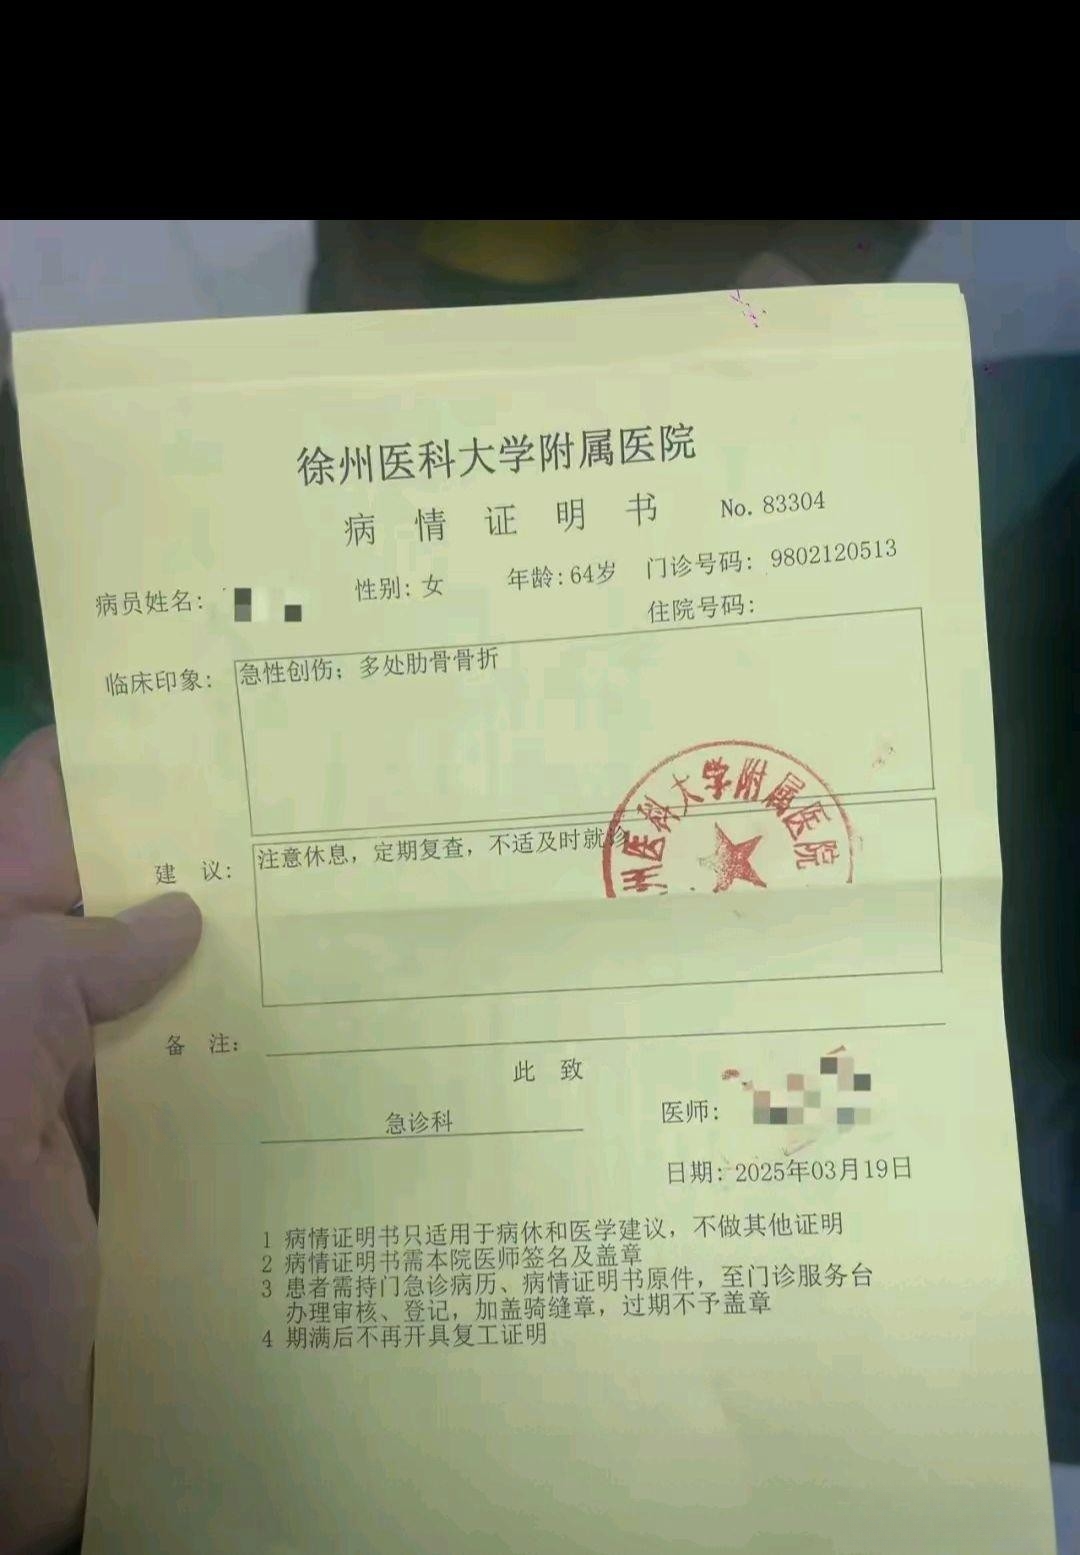 徐州医科大学附属医院
病情证明书 No. 83304
病员姓名: 性别: 女 年龄: 64岁 门诊号码: 9802120513
住院号码:
临床印象: 急性创伤; 多处肋骨骨折
州医科大学附属医院
建 议: 注意休息, 定期复查, 不适及时就诊
备 注:
此 致
急诊科 医师:
日期: 2025年03月19日
1 病情证明书只适用于病休和医学建议, 不做其他证明
2 病情证明书需本院医师签名及盖章
3 患者需持门急诊病历、病情证明书原件, 至门诊服务台
办理审核、登记, 加盖骑缝章, 过期不予盖章
4 期满后不再开具复工证明